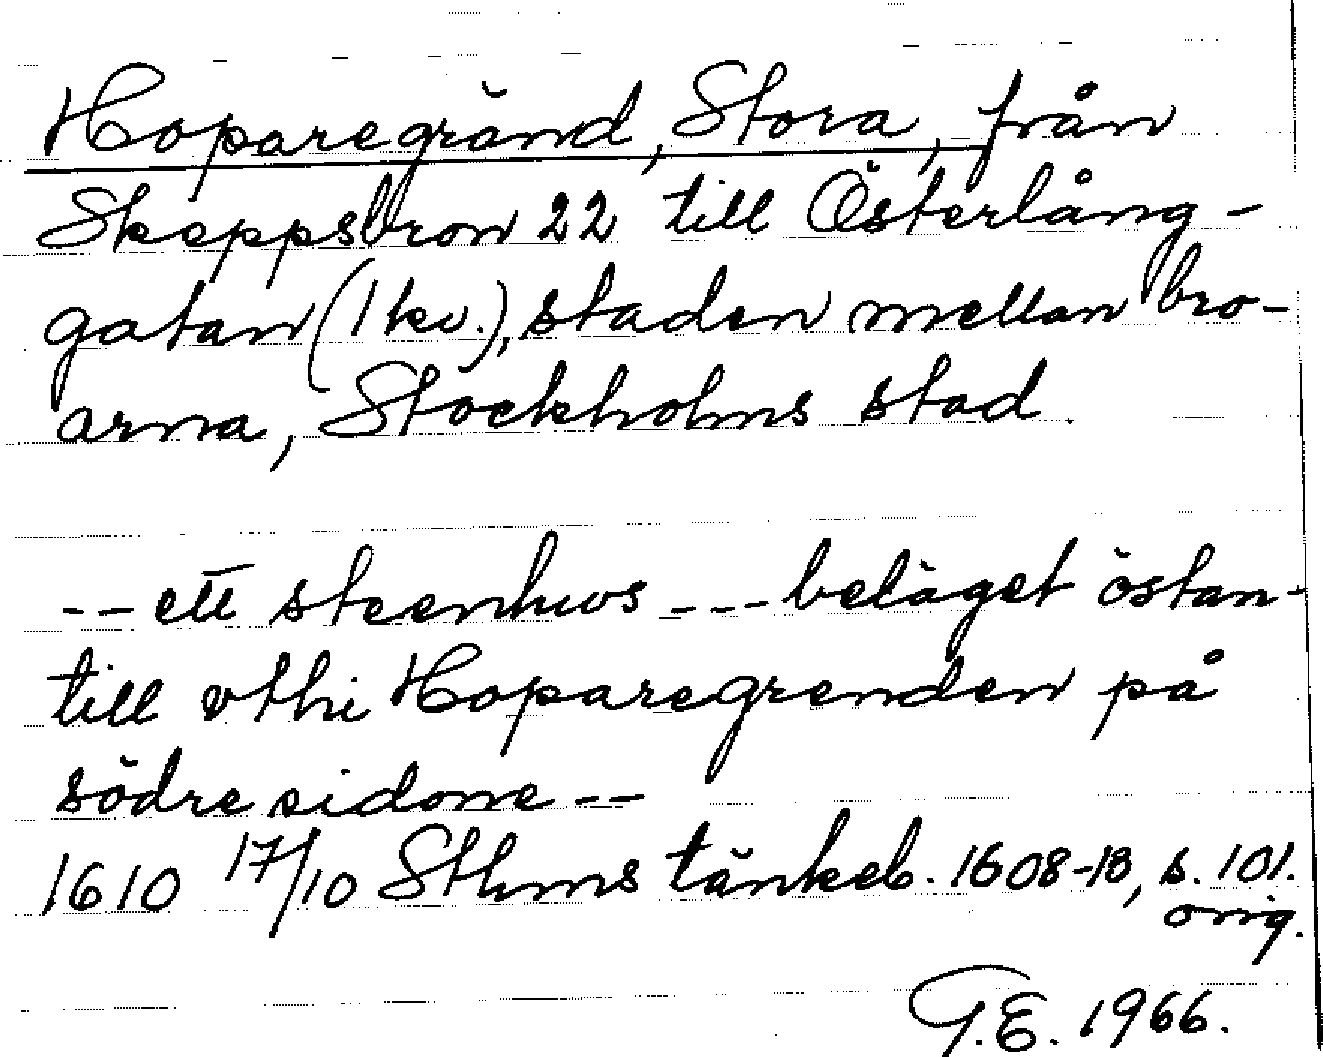 Hoparegränd, Stora, från
Skeppsbron 22 till Österlång-
gatan (1 kv.), staden mellan bro-
arna, Stockholms stad.
-- ett steenhws --- beläget östan-
till vthi Hoparegrenden på
södre sidonne --
1610 17/10 Sthms tänkeb. 1608-18, s. 101.
orig.
G.E. 1966.